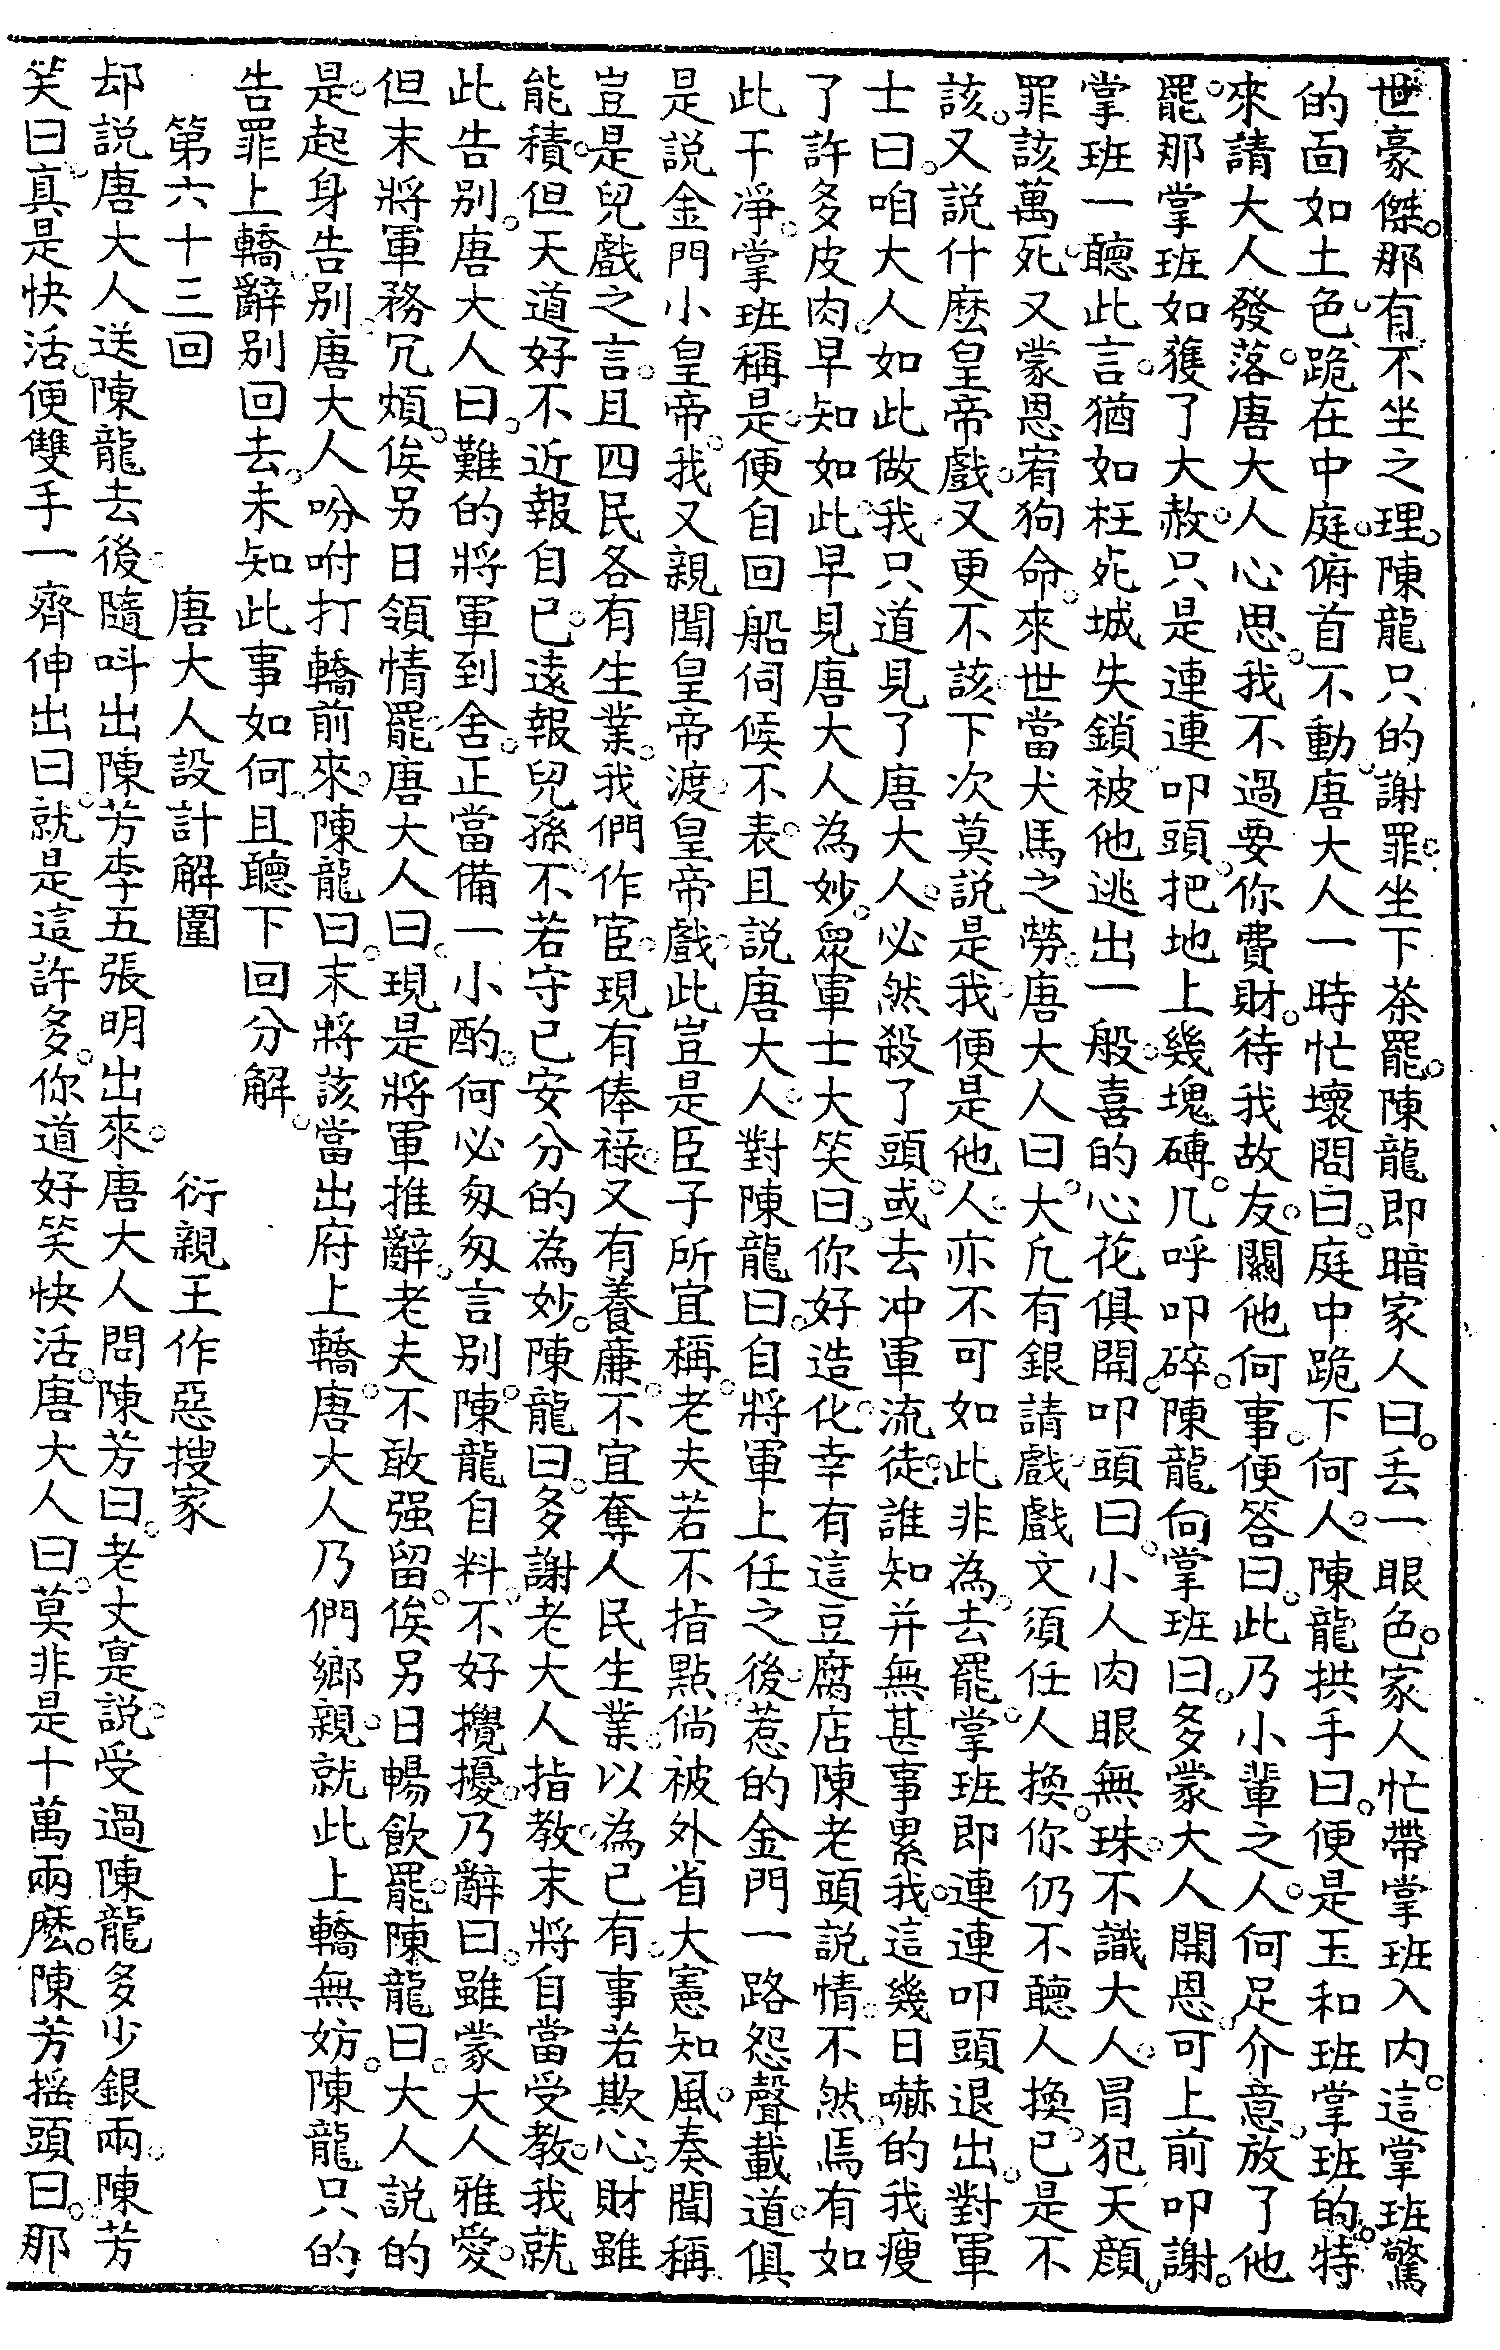 世豪傑。那有不坐之理。陳龍只的謝罪坐下茶罷。陳龍即暗家人曰。丢一眼色。家人忙帶掌班入内。這掌班驚
的面如土色。跪在中庭。俯首不動。唐大人一時忙壞問曰。庭中跪下何人。陳龍拱手曰。便是玉和班掌班的。特
來請大人發落。唐大人心思。我不過要你費財。待我故友。關他何事。便答曰。此乃小輩之人。何足介意。放了他
罷。那掌班如獲了大赦。只是連連叩頭。把地上幾塊磚。几呼叩碎。陳龍向掌班曰。多蒙大人開恩。可上前叩謝。
掌班一聽此言。猶如枉死城失鎖被他逃出一般。喜的心花俱開。叩頭曰。小人肉眼無珠。不識大人。冒犯天顔。
罪該萬死。又蒙恩宥狗命。來世當犬馬之勞。唐大人曰。大凡有銀請戲。戲文須任人換。你仍不聽人換。已是不
該。又説什麽皇帝戲。又更不該。下次莫説是我。便是他人。亦不可如此非為。去罷。掌班即連連叩頭退出。對軍
士曰。咱大人如此做。我只道見了唐大人。必然殺了頭。或去冲軍流徒。誰知并無甚事累我。這幾日嚇的我瘦
了許多皮肉。早知如此。早見唐大人為妙。衆軍士大笑曰。你好造化。幸有這豆腐店陳老頭説情。不然。焉有如
此干淨。掌班稱是。便自回船伺候不表。且説唐大人。對陳龍曰。自將軍上任之後。惹的金門一路怨聲載道。俱
是説金門小皇帝。我又親聞皇帝渡。皇帝戲。此豈是臣子所宜稱。老夫若不指點。倘被外省大憲知風。奏聞稱
豈是兒戲之言。且四民各有生業。我們作宦。現有俸禄。又有養廉。不宜奪人民生業。以為己有。事若欺心。財雖
能積。但天道好不近報自己。遠報兒孫。不若守己安分的為妙。陳龍曰。多謝老大人指教。末將自當受教。我就
此告别。唐大人曰。難的將軍到舍。正當備一小酌。何必匆匆言别。陳龍自料。不好攪擾。乃辭曰。雖蒙大人雅愛。
但末將軍務冗煩。俟另日領情罷。唐大人曰。現是將軍推辭。老夫不敢强留。俟另日暢飲罷。陳龍曰。大人説的
是。起身告别。唐大人吩咐打轎前來。陳龍曰。末將該當出府上轎。唐大人乃們鄉親。就此上轎無妨。陳龍只的
告罪上轎。辭别回去。未知此事如何。且聽下回分解。
第六十三回　唐大人設計解圍　衍親王作惡搜家
却説唐大人送陳龍去後。隨呌出陳芳李五張明出來。唐大人問陳芳曰。老丈寔説。受過陳龍多少銀兩。陳芳
笑曰。真是快活。便雙手一齊伸出曰。就是這許多。你道好笑快活。唐大人曰。莫非是十萬兩麽。陳芳摇頭曰。那